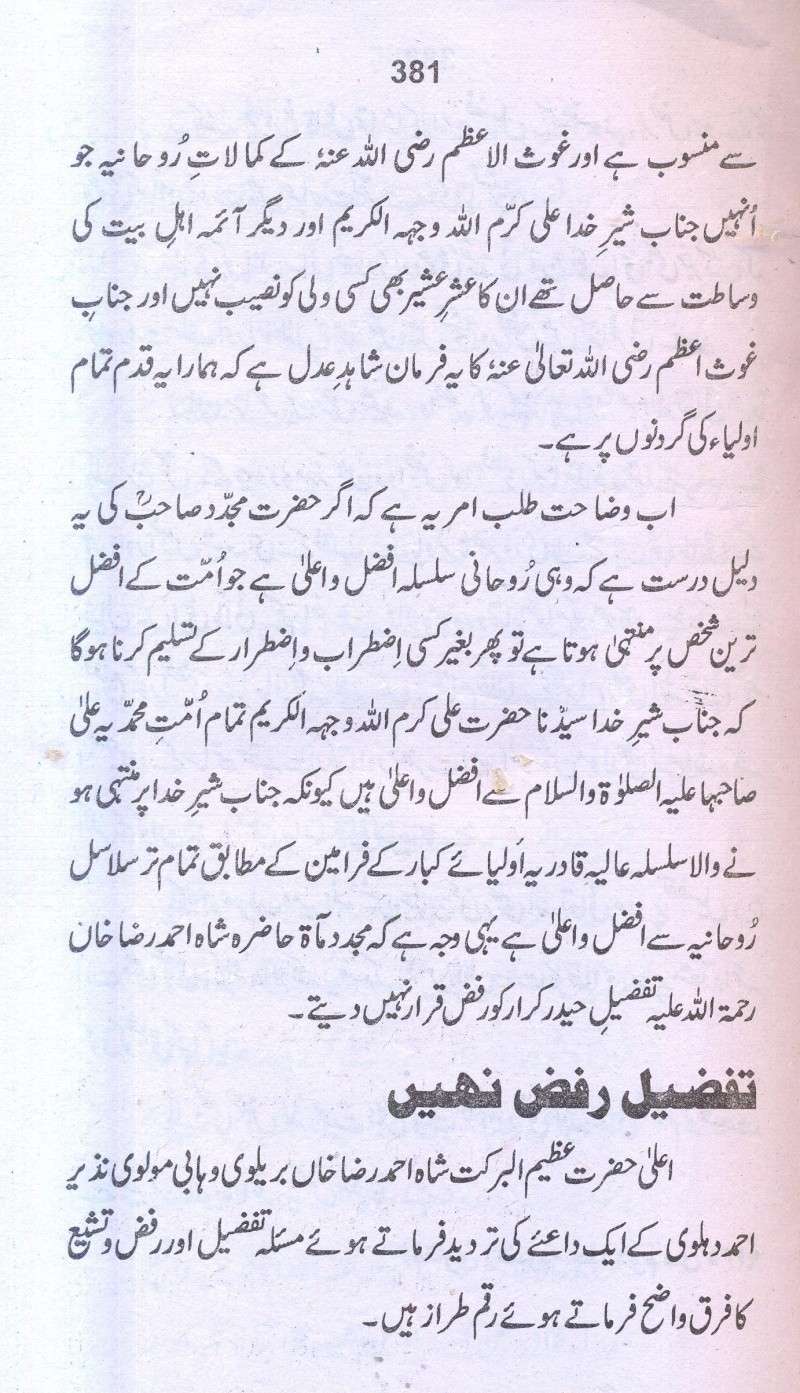 381
سے منسوب ہے اور غوث الاعظم رضی اللہ عنہٗ کے کمالاتِ رُوحانیہ جو
اُنہیں جناب شیرِ خدا علی کرّم اللہ وجہہ الکریم اور دیگر آئمہ اہلِ بیت کی
وساطت سے حاصل تھے ان کا عشرِ عشیر بھی کسی ولی کو نصیب نہیں اور جنابِ
غوث اعظم رضی اللہ تعالیٰ عنہٗ کا یہ فرمان شاہدِ عدل ہے کہ ہمارا یہ قدم تمام
اولیاء کی گردنوں پر ہے۔
اب وضاحت طلب امر یہ ہے کہ اگر حضرت مجدّد صاحبؒ کی یہ
دلیل درست ہے کہ وہی رُوحانی سلسلہ افضل و اعلیٰ ہے جو اُمّت کے افضل
ترین شخص پر منتہیٰ ہوتا ہے تو پھر بغیر کسی اِضطراب و اِضطرار کے تسلیم کرنا ہوگا
کہ جناب شیرِ خدا سیدّنا حضرت علی کرم اللہ وجہہ الکریم تمام اُمّتِ محمّدیہ علیٰ
صاحبہا علیہ الصلوٰۃ والسلام سے افضل و اعلیٰ ہیں کیونکہ جناب شیرِ خدا پر منتہی ہو
نے والا سلسلہ عالیہ قادریہ اَولیائے کبار کے فرامین کے مطابق تمام تر سلاسل
رُوحانیہ سے افضل و اعلیٰ ہے یہی وجہ ہے کہ مجدد مآۃ حاضرہ شاہ احمد رضا خاں
رحمۃ اللہ علیہ تفضیلِ حیدر کرار کو رفض قرار نہیں دیتے۔
تفضیل رفض نہیں
اعلیٰ حضرت عظیم البرکت شاہ احمد رضا خاں بریلوی وہابی مولوی نذیر
احمد دہلوی کے ایک داعئے کی تردید فرماتے ہوئے مسئلہ تفضیل اور رفض و تشیع
کا فرق واضح فرماتے ہوئے رقم طراز ہیں۔